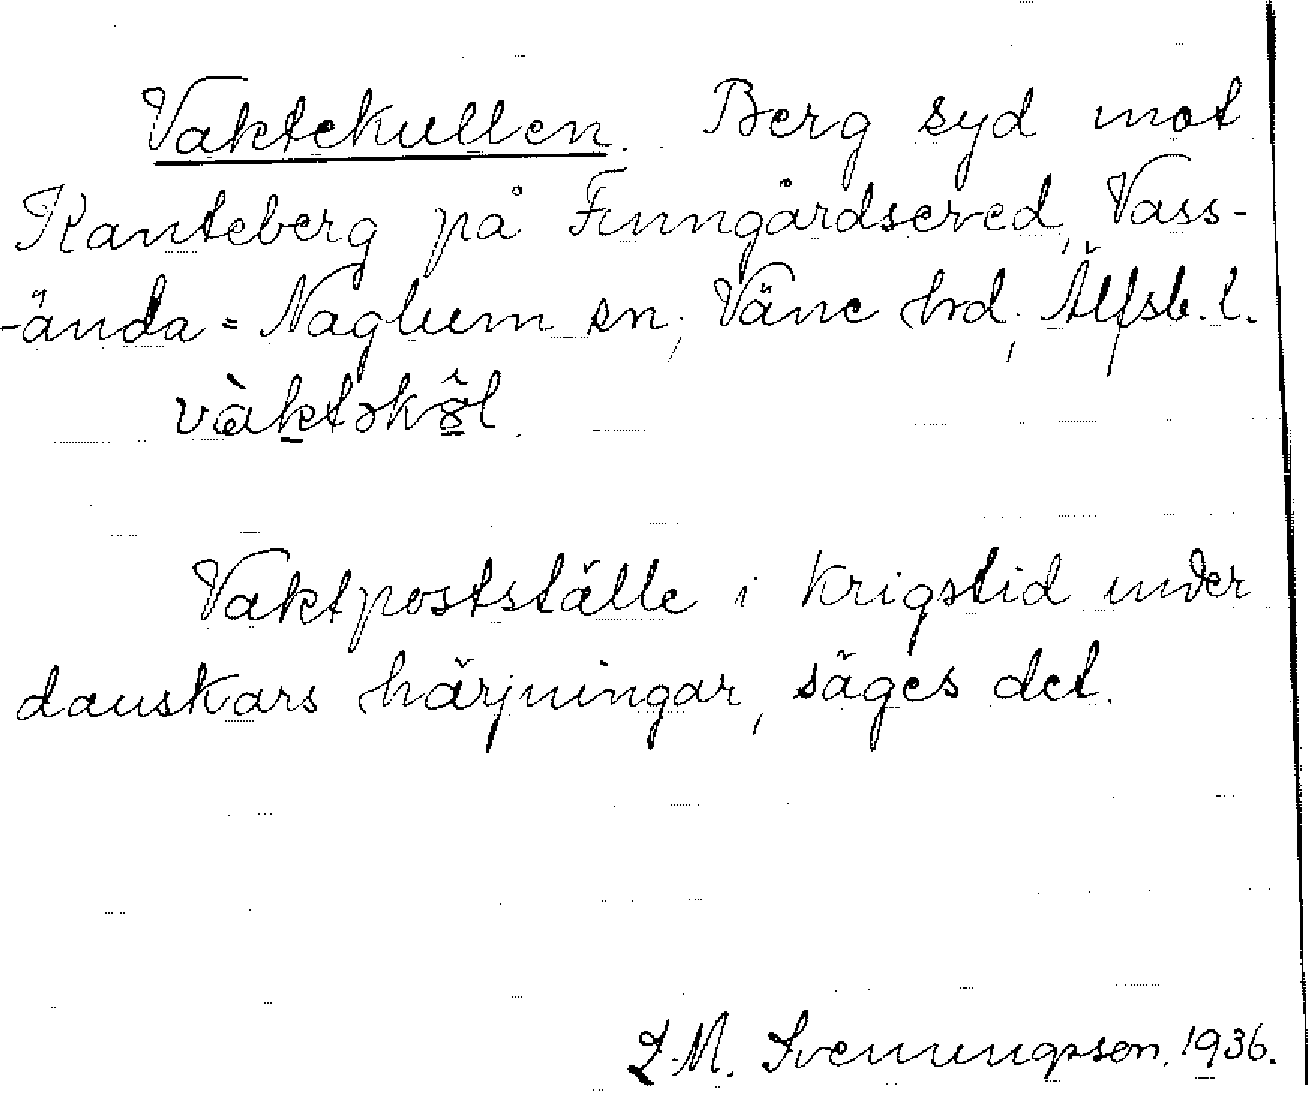 Vaktekullen. Berg syd mot
Kanteberg på Finngårdsered, Vass-
-ända-Naglum sn, Väne hd, Älfsb. l.
vàktəkŏ̂l.
Vaktpostställe i krigstid under
danskars härjningar, säges det.
L-M. Svenungsson. 1936.